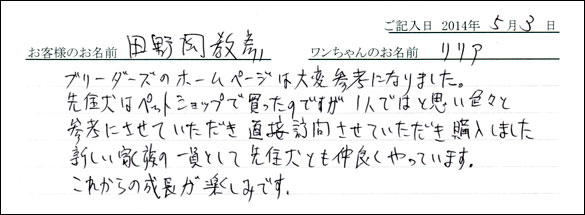 ご記入日 2014年 5月 3日
お客様のお名前 田野岡教彦 ワンちゃんのお名前 リリア
ブリーダーズのホームページは大変参考になりました。
先住犬はペットショップで買ったのですが1人ではと思い色々と
参考にさせていただき直接訪問させていただき購入しました
新しい家族の一員として先住犬とも仲良くやっています。
これからの成長が楽しみです。